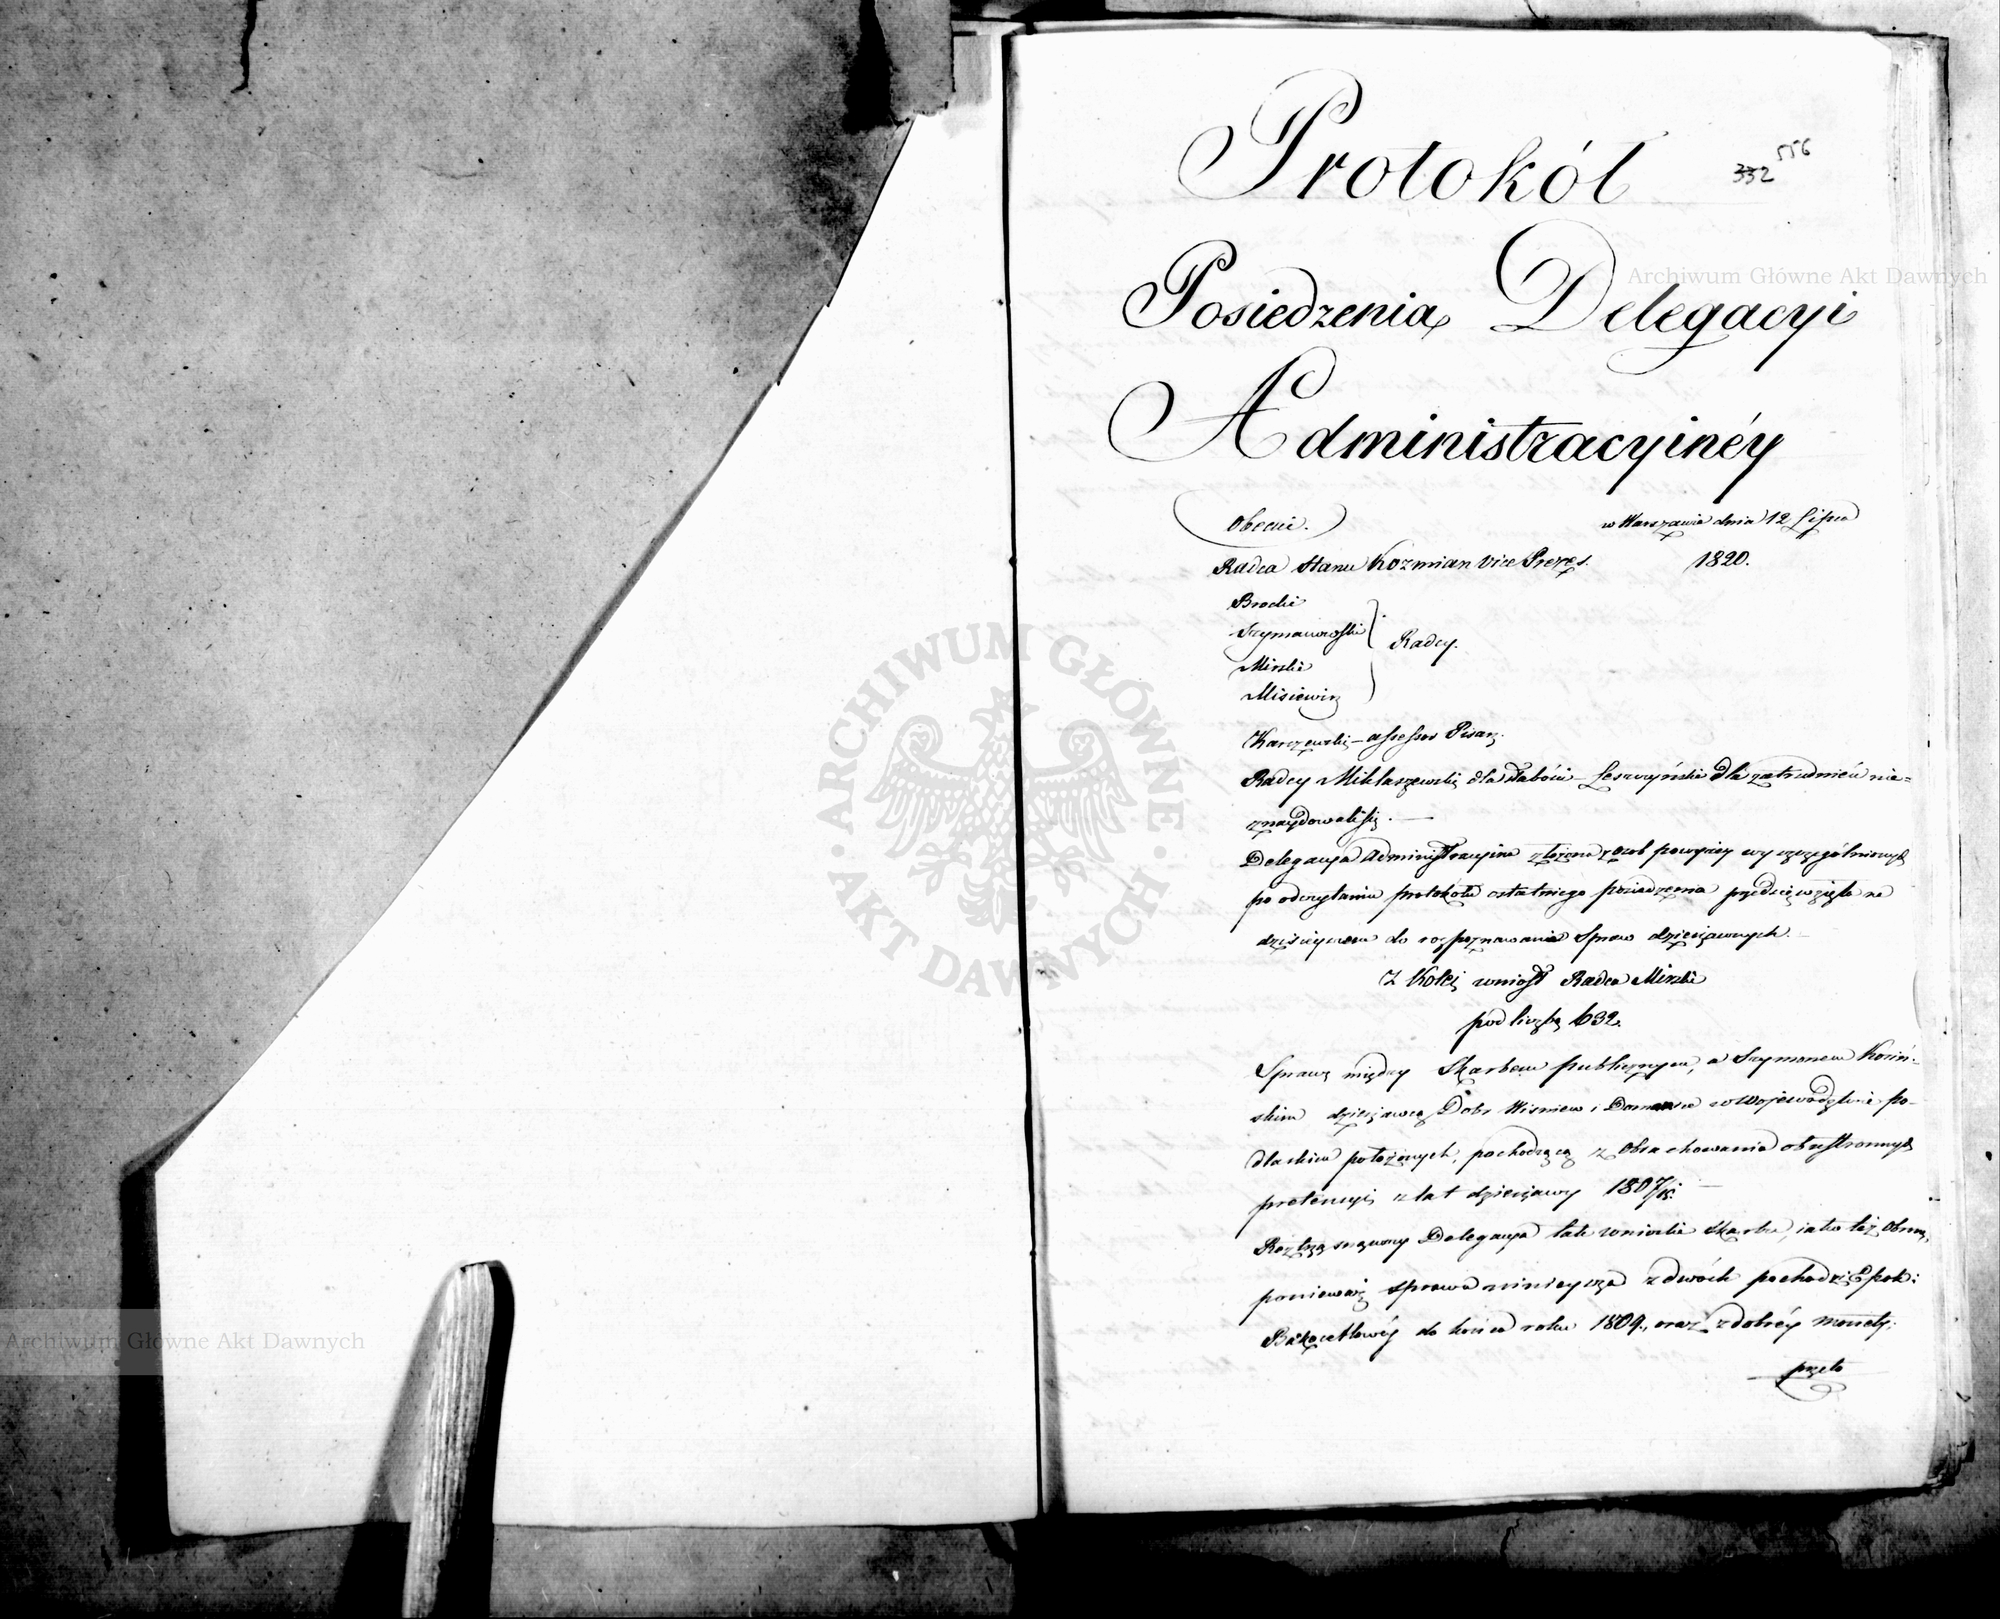 Protokół
332 556
Posiedzenia Delegacyi
Administracyinéy
Obecni.
w Warszawie dnia 12 Lipca
1820.
Radca Stanu Kozmian Vice Prezes.
Brocki
Szymanowski
Mirski
Misiewicz
Radcy.
Karczewski – assessor Pisarz.
Radcy Miklaszewski dla słabości – Leszczyński dla zatrudnień nie=
znaydowali się. —
Delegacya Administracyina złożona z osob powyżey wyszczególnionych
po odczytaniu protokołu ostatniego posiedzenia przedsięwzięła na
dzisieyszem do rozpoznawania Spraw dzierżawnych. –
Z Kolei wniosł Radca Mirski
pod liczbą 632.
Sprawę między Skarbem publicznym, a Szymonem Kosiń-
skim dzierżawcą Dobr Wisniew i Domanice w Wojewodztwie po-
dlaskim położonych, pochodzącą z Obrachowania obustronnych
pretensyi z lat dzierżawy 1807/15. —
Roztrząsnąwszy Delegacya tak wnioski Skarbu, iako też Obronę,
ponieważ sprawa ninieysza z dwóch pochodzi Epok:
Bankocetlowéy do końca roku 1809., oraz z dobréy monety;
przeto
Archiwum Główne Akt Dawnych
ARCHIWUM GŁÓWNE • AKT DAWNYCH •
Archiwum Główne Akt Dawnych